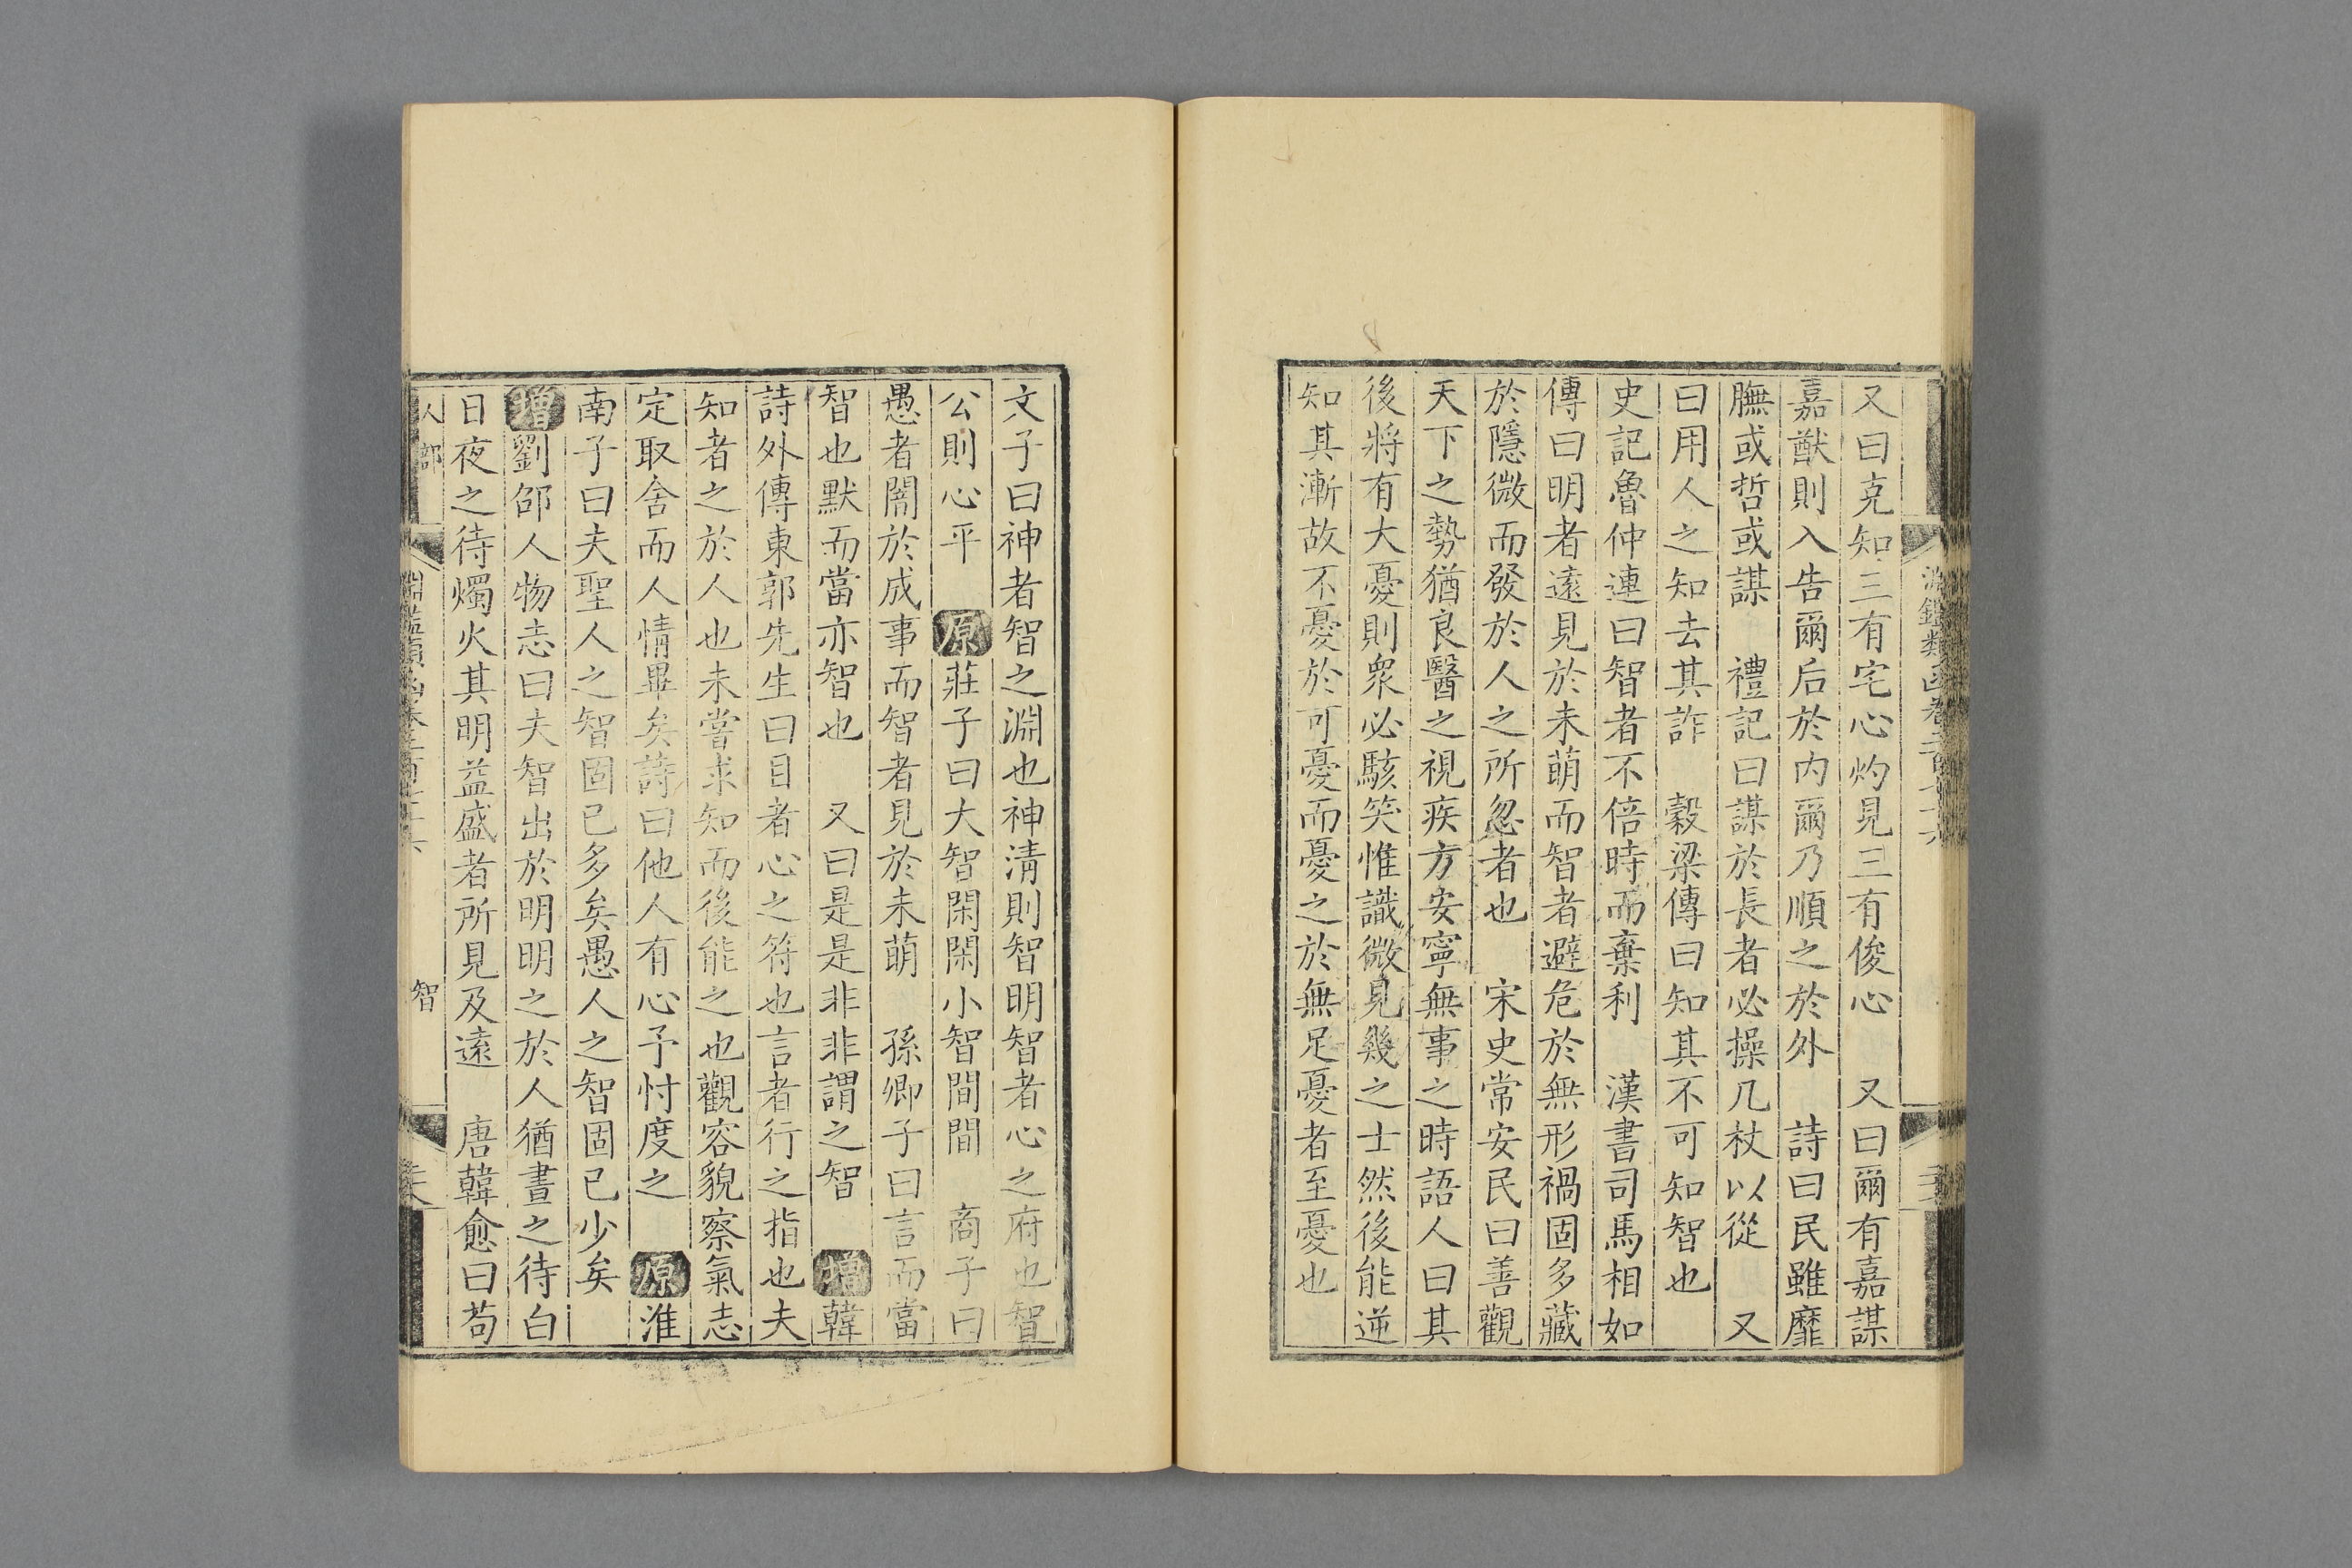 又曰克知三有宅心灼見三有俊心　又曰爾有嘉謀
嘉猷則入告爾后於內爾乃順之於外　詩曰民雖靡
膴或哲或謀　禮記曰謀於長者必操几杖以從　又
曰用人之知去其詐　穀梁傳曰知其不可知智也
史記魯仲連曰智者不倍時而棄利　漢書司馬相如
傳曰明者遠見於未萌而智者避危於無形禍固多藏
於隱微而發於人之所忽者也　宋史常安民曰善觀
天下之勢猶良醫之視疾方安寧無事之時語人曰其
後將有大憂則衆必駭笑惟識微見幾之士然後能逆
知其漸故不憂於可憂而憂之於無足憂者至憂也
文子曰神者智之淵也神清則智明智者心之府也智
公則心平　原莊子曰大智閑閑小智間間　商子曰
愚者闇於成事而智者見於未萌　孫卿子曰言而當
智也默而當亦智也　又曰是是非非謂之智　增韓
詩外傳東郭先生曰目者心之符也言者行之指也夫
知者之於人也未嘗求知而後能之也觀容貌察氣志
定取舍而人情畢矣詩曰他人有心予忖度之　原淮
南子曰夫聖人之智固已多矣愚人之智固已少矣
增劉邵人物志曰夫智出於明明之於人猶晝之待白
日夜之待燭火其明益盛者所見及遠　唐韓愈曰苟
人部
智